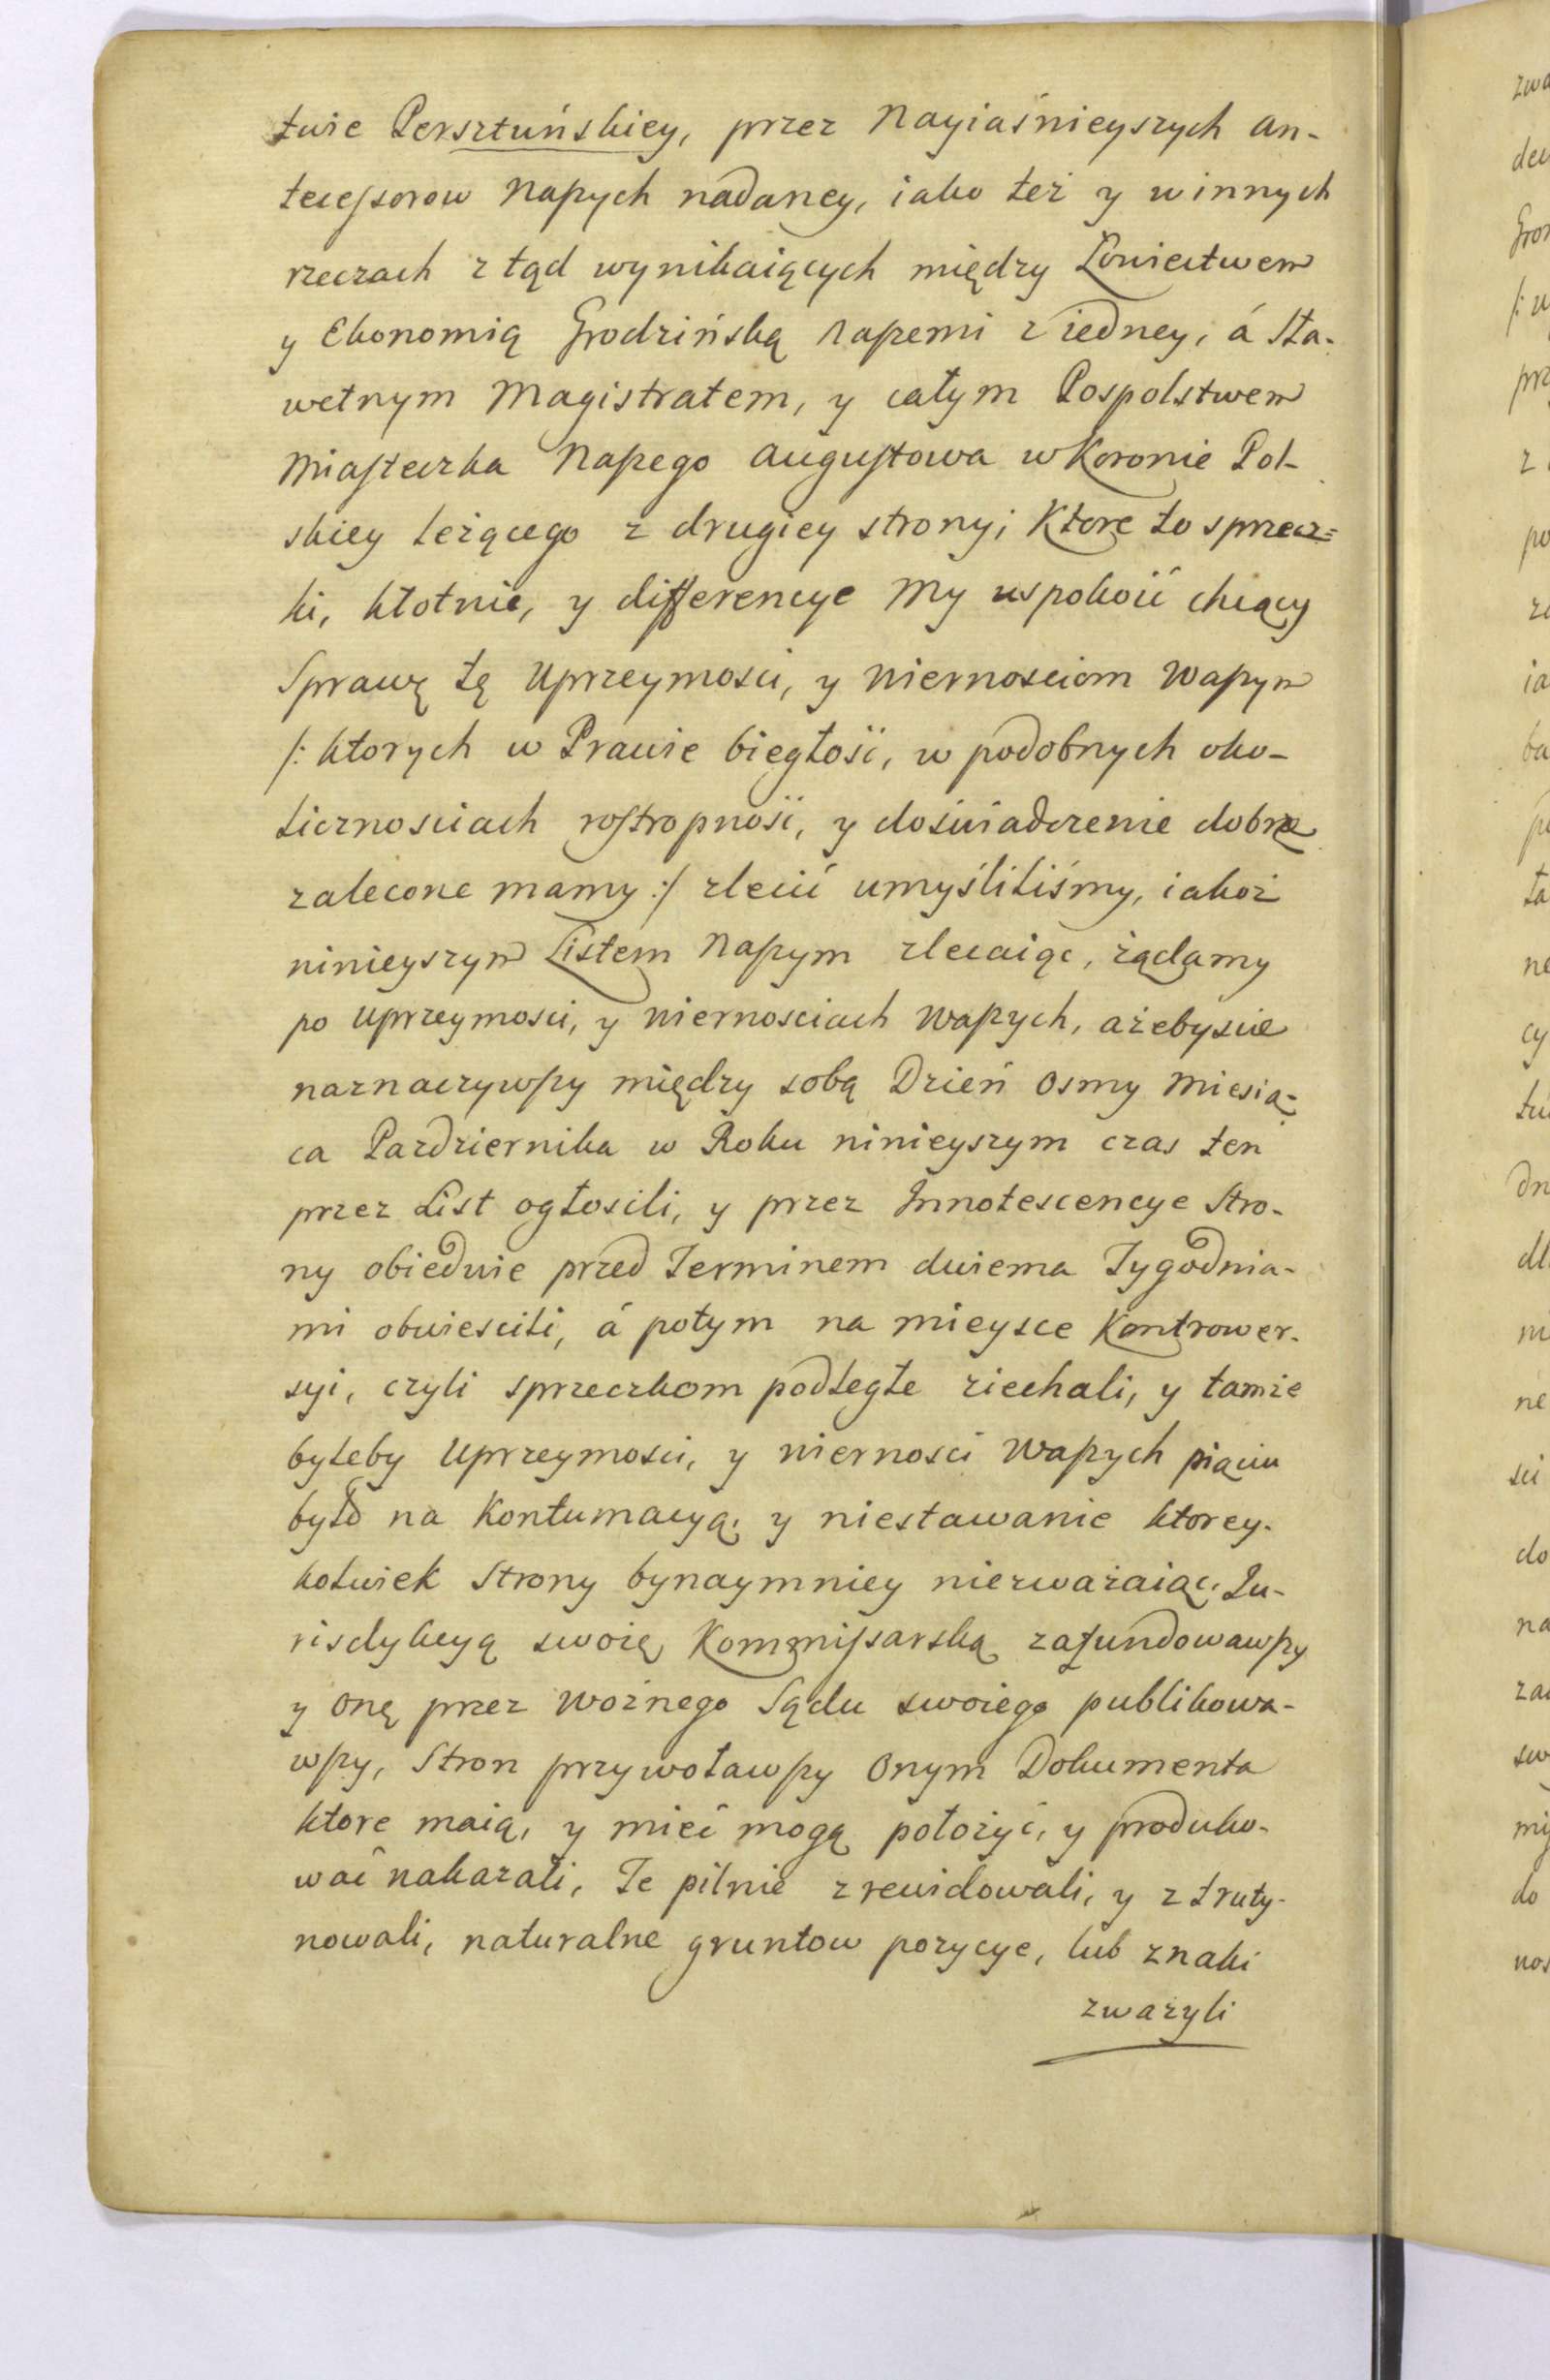 twie Persztuńskiey, przez Nayiaśnieyszych An-
tecessorow Naszych nadaney, iako też y w innych
rzeczach z tąd wynikaiących między Łowiectwem
y Ekonomią Grodzińską Naszemi z iedney, á Sła-
wetnym Magistratem, y całym Pospolstwem
Miasteczka Naszego Augustowa w Koronie Pol-
skiey leżącego z drugiey strony; Ktore to sprzecz=
ki, kłotnie, y differencye My uspokoić chcący
Sprawę tę Uprzeymosci, y Wiernosciom Waszym
/: ktorych w Prawie biegłość, w podobnych oko-
licznosciach rostropność, y doświadczenie dobrze
zalecone mamy :/ zlecić umyśliliśmy, iakoż
ninieyszym Listem Naszym zlecaiąc, żądamy
po Uprzeymosci, y Wiernosciach Waszych, ażebyscie
naznaczywszy między sobą Dzień Osmy Miesią-
ca Pazdziernika w Roku ninieyszym czas ten
przez List ogłosili, y przez Innotescencye Stro-
ny obiedwie przed Terminem dwiema Tygodnia-
mi obwiescili, á potym na mieysce Kontrower-
syi, czyli sprzeczkom podległe ziechali, y tamże
byleby Uprzeymosci, y Wiernosci Waszych pięciu
było na Kontumacyą, y niestawanie ktorey-
kolwiek Strony bynaymniey niezważaiąc, Ju-
risdykcyą swoię Kommissarską zafundowawszy
y onę przez Woźnego Sądu swoiego publikowa-
wszy, Stron przywoławszy Onym Dokumenta
ktore maią, y mieć mogą położyć, y produko-
wać nakazali, Te pilnie zrewidowali, y ztruty-
nowali, naturalne gruntow pozycye, lub znaki
zważyli